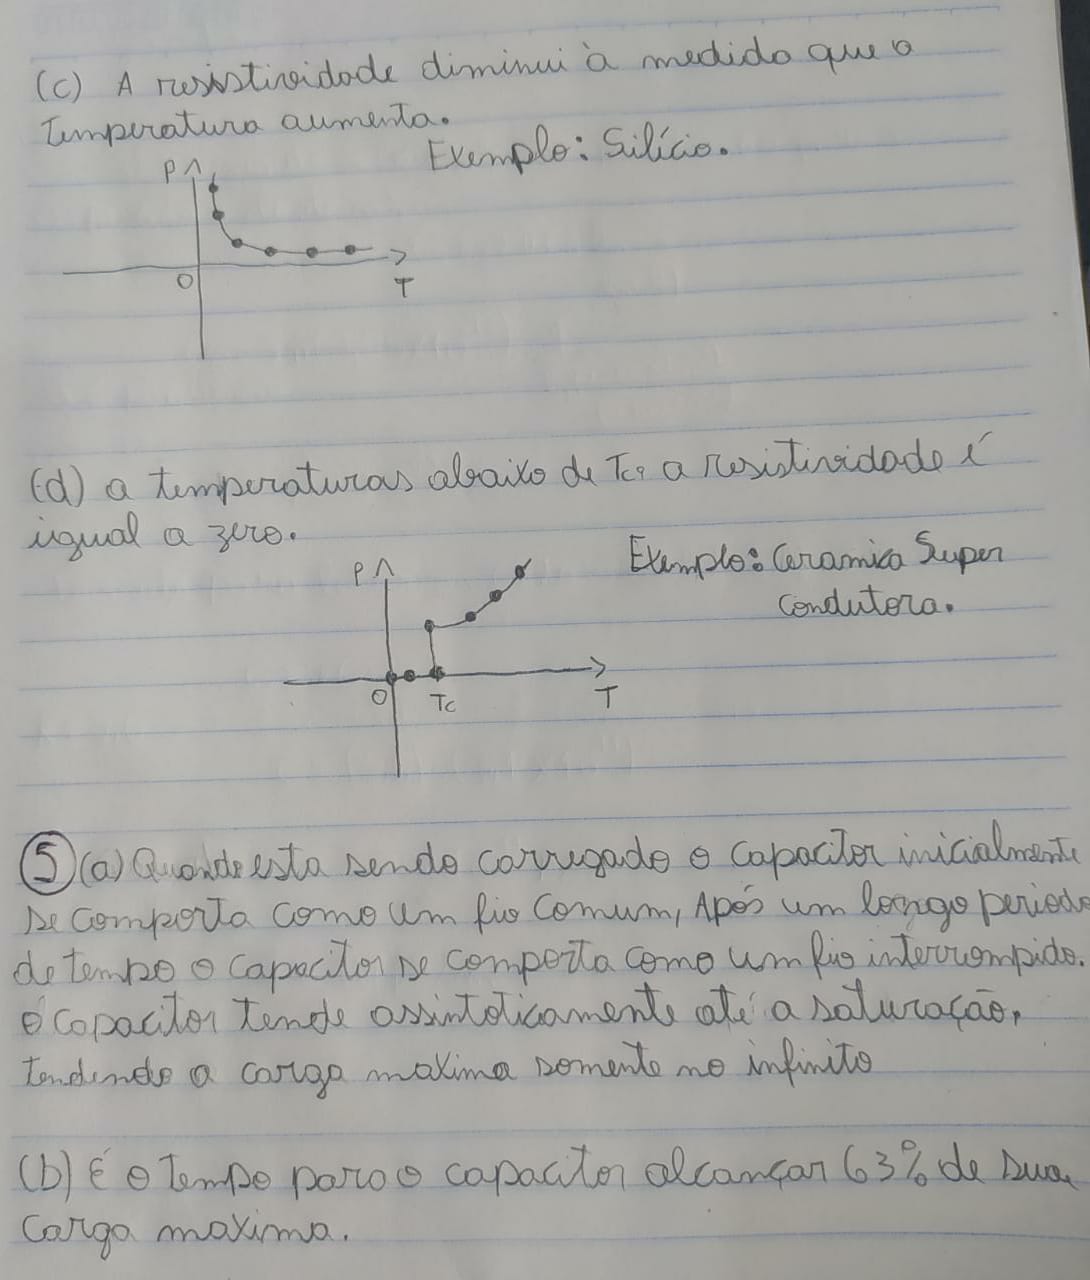 (c) A resistividade diminui à medida que a
temperatura aumenta.
Exemplo: Silício.
ρ
0
T
(d) a temperaturas abaixo de Tc, a resistividade é
igual a zero.
Exemplo: Ceramica Super
condutora.
ρ
0
Tc
T
5 (a) Quando esta sendo carregado o capacitor inicialmente
se comporta como um fio comum, Após um longo periodo
de tempo o capacitor se comporta como um fio interrompido.
o capacitor tende assintoticamente até a saturação,
tendendo a carga maxima somente no infinito
(b) É o tempo para o capacitor alcançar 63% de sua
carga maxima.